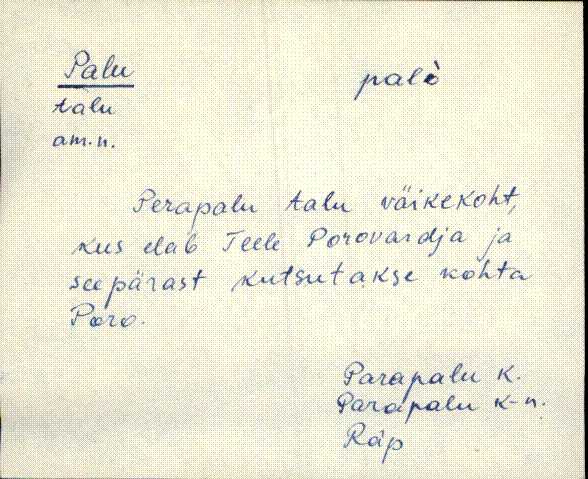 Palu palè
talu
am.n.
Perapalu talu väikekoht,
kus elab Teele Porovardja ja
seepärast kutsutakse kohta
Poro.
Parapalu k.
Parapalu k-n.
Räp